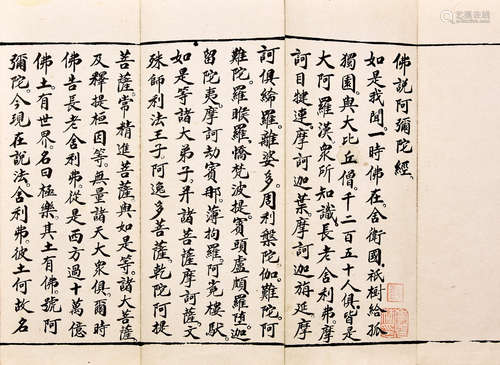 佛說阿彌陀經
如是我聞一時佛在舍衛國祇樹給孤
獨園與大比丘僧千二百五十人俱皆是
大阿羅漢眾所知識長老舍利弗摩
訶目犍連摩訶迦葉摩訶迦旃延摩
訶俱絺羅離婆多周利槃陀伽難陀阿
難陀羅睺羅憍梵波提賓頭盧頗羅墮迦
留陀夷摩訶劫賓那薄拘羅阿㝹樓馱
如是等諸大弟子并諸菩薩摩訶薩文
殊師利法王子阿逸多菩薩乾陀訶提
菩薩常精進菩薩與如是等諸大菩薩
及釋提桓因等無量諸天大眾俱爾時
佛告長老舍利弗從是西方過十萬億
佛土有世界名曰極樂其土有佛號阿
彌陀今現在說法舍利弗彼土何故名